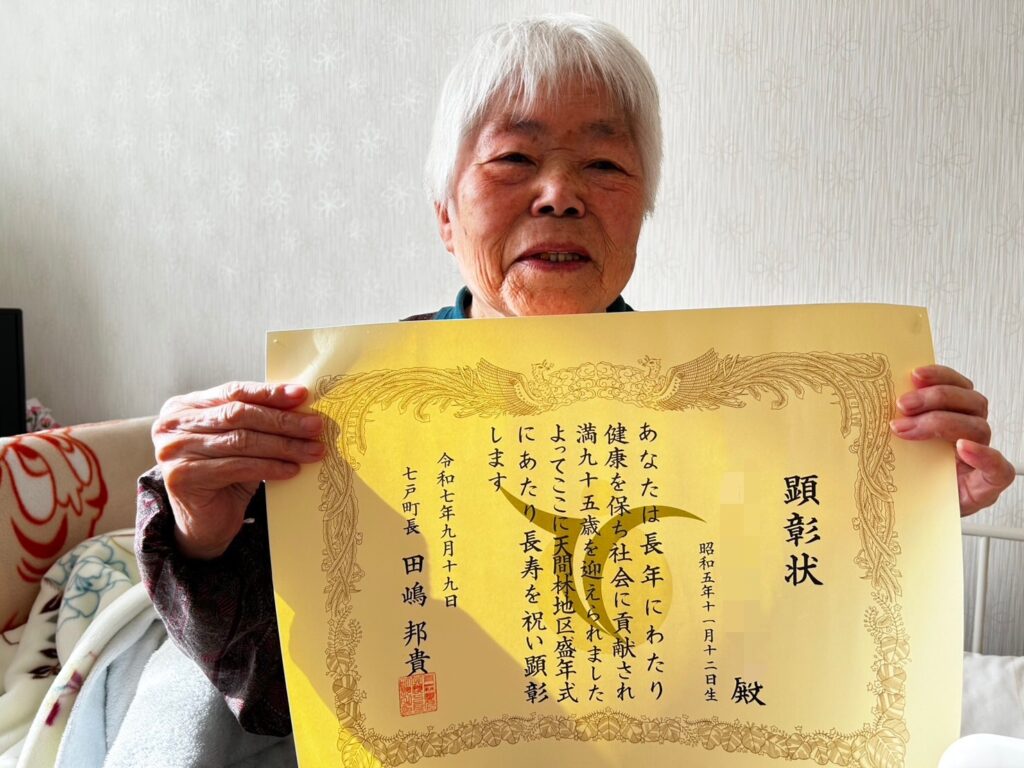 顕彰状
殿
昭和五年十一月十二日生
あなたは長年にわたり
健康を保ち社会に貢献され
満九十五歳を迎えられました
よってここに天間林地区盛年式
にあたり長寿を祝い顕彰
します
令和七年九月十九日
七戸町長 田嶋邦貴